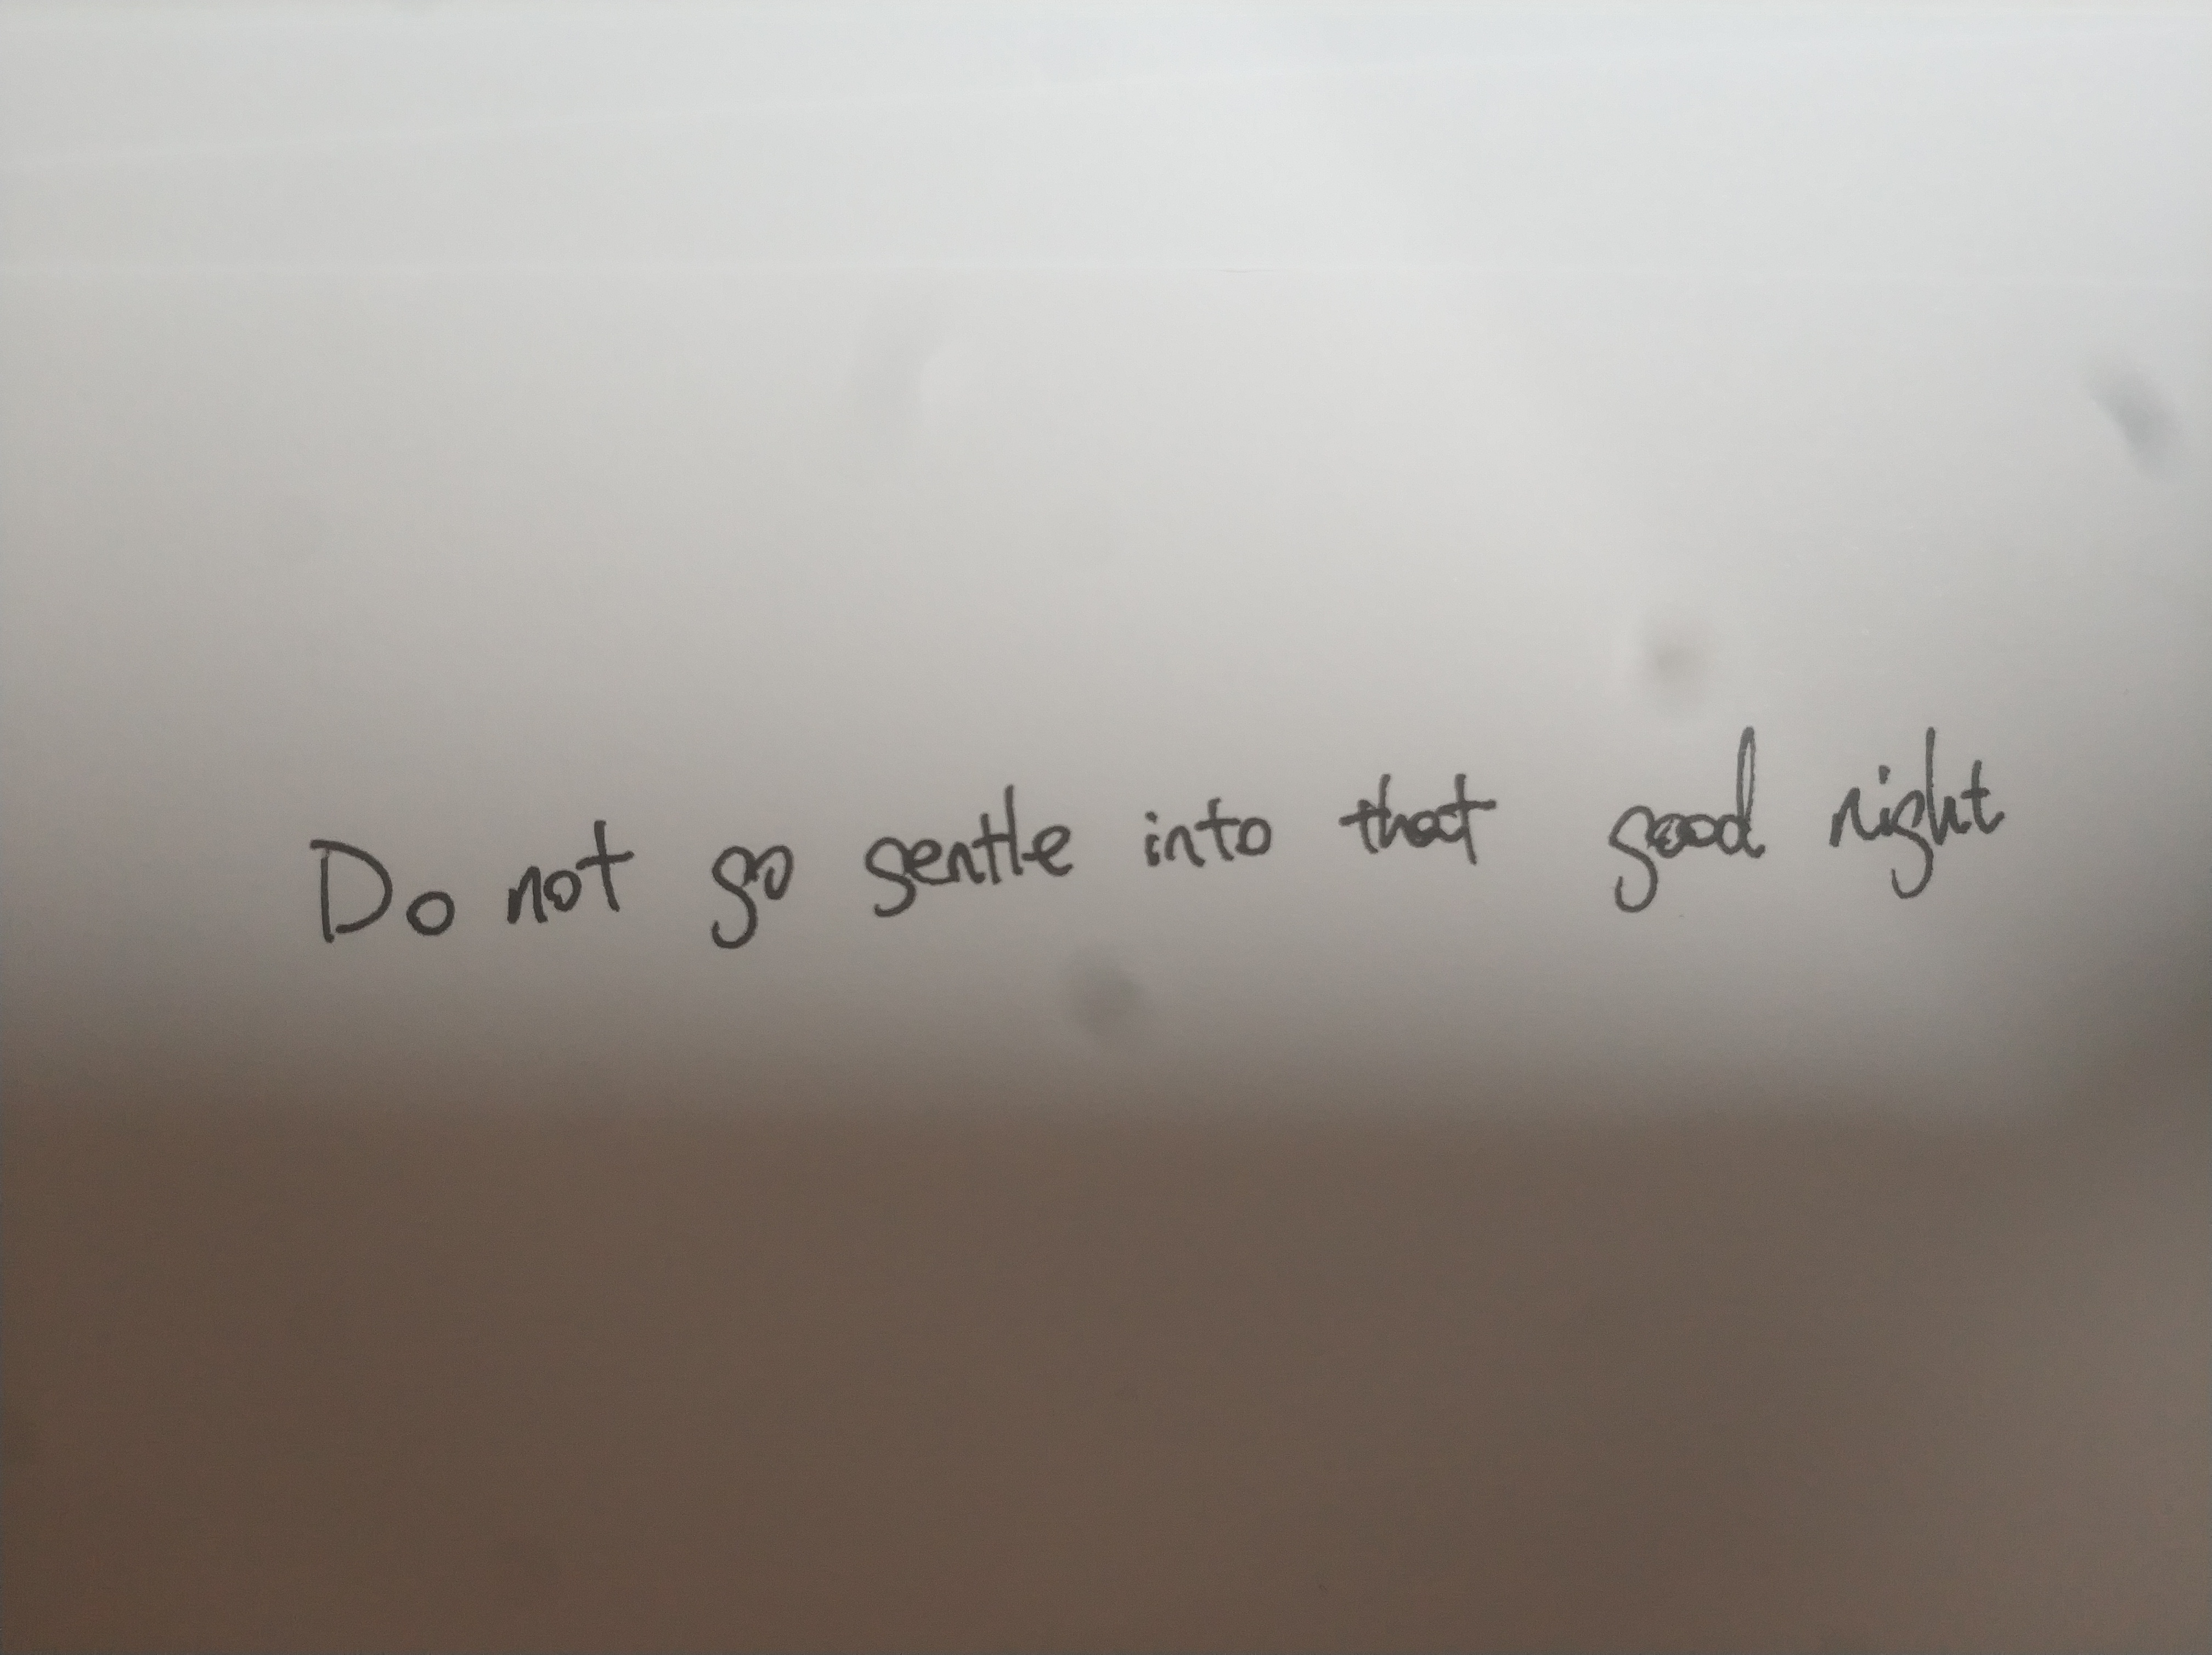 Do not go gentle into that good night